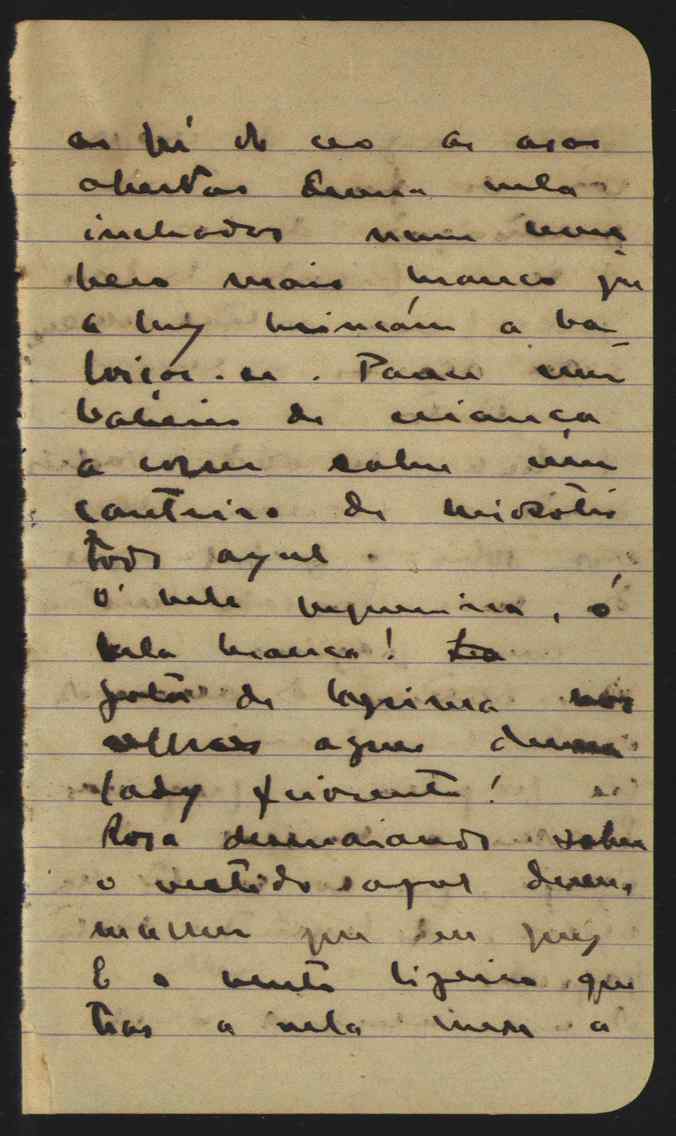 ao pé do ceo as asas
abertas duma vela
inchadas num
mais branco que
a luz brincám a ba
loiçar-se. Parece um
babeiro de criança
a correr sobre um
canteiro de miosótis
todo azul.
Ó vela pequenina, ó
vela branca!
gota de lagrima nos
olhos azues duma
lady
Rosa desmaiando sobre
o vestido azul duma
mulher que
E o vento ligeiro que
tras a vela a